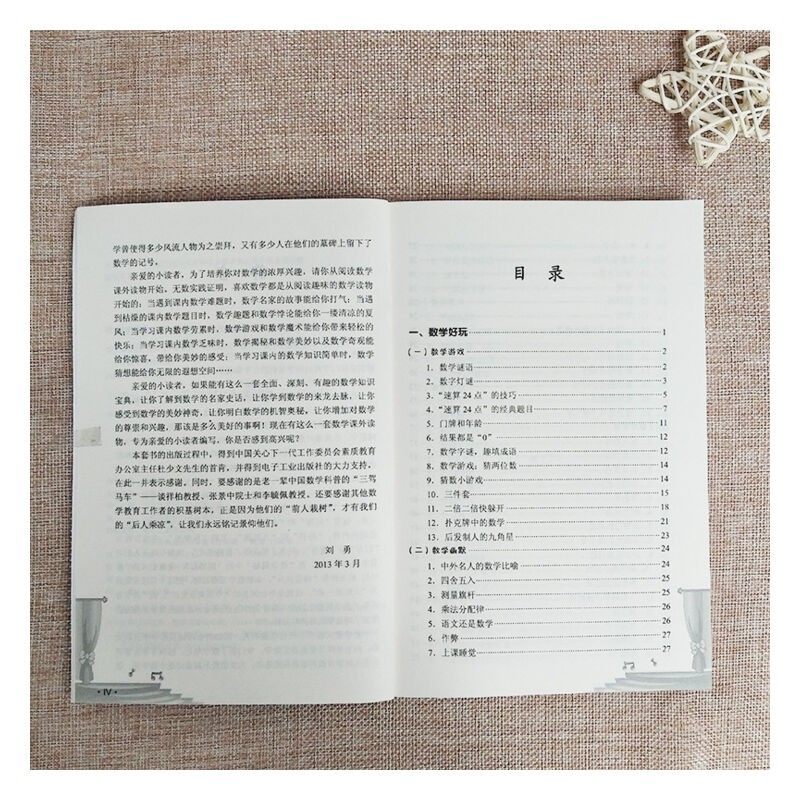 学曾使得多少风流人物为之崇拜，又有多少人在他们的墓碑上留下了
数学的记号。
亲爱的小读者，为了培养你对数学的浓厚兴趣，请你从阅读数学
课外读物开始。无数实践证明，喜欢数学都是从阅读趣味的数学读物
开始的：当遇到课内数学难题时，数学名家的故事能给你打气；当遇
到枯燥的课内数学题目时，数学趣题和数学悖论能给你一缕清凉的夏
风；当学习课内数学劳累时，数学游戏和数学魔术能给你带来轻松的
快乐；当学习课内数学乏味时，数学揭秘和数学美妙以及数学奇观能给
你惊喜，带给你美妙的感受；当学习课内的数学知识简单时，数学
猜想能给你无限的遐想空间……
亲爱的小读者，如果能有这么一套全面、深刻、有趣的数学知识
宝典，让你了解到数学的名家史话，让你学到数学的来龙去脉，让你
感受到数学的美妙神奇，让你明白数学的机智奥秘，让你增加对数学
的尊崇和兴趣，那该是多么美好的事啊！现在有这么一套数学课外读
物，专为亲爱的小读者编写，你是否感到高兴呢？
本套书的出版过程中，得到中国关心下一代工作委员会素质教育
办公室主任杜少文先生的首肯，并得到电子工业出版社的大力支持，
在此一并表示感谢。同时，要感谢的是老一辈中国数学科普的“三驾
马车”——谈祥柏教授、张景中院士和李毓佩教授。还要感谢其他数
学教育工作者的积基树本，正是因为他们的“前人栽树”，才有我们
的“后人乘凉”，让我们永远铭记景仰他们。
刘 勇
2013 年 3 月
· IV ·
目 录
一、数学好玩 1
（一）数学游戏 2
1. 数学谜语 2
2. 数字灯谜 3
3. “速算 24 点”的技巧 5
4. “速算 24 点”的经典题目 7
5. 门牌和年龄 11
6. 结果都是“0” 12
7. 数学字谜，趣填成语 12
8. 数学游戏：猜两位数 12
9. 猜数小游戏 13
10. 三件套 15
11. 二倍二倍快躲开 18
12. 扑克牌中的数学 21
13. 后发制人的九角星 23
（二）数学幽默 24
1. 中外名人的数学比喻 24
2. 四舍五入 25
3. 测量旗杆 25
4. 乘法分配律 26
5. 语文还是数学 26
6. 作弊 27
7. 上课睡觉 27